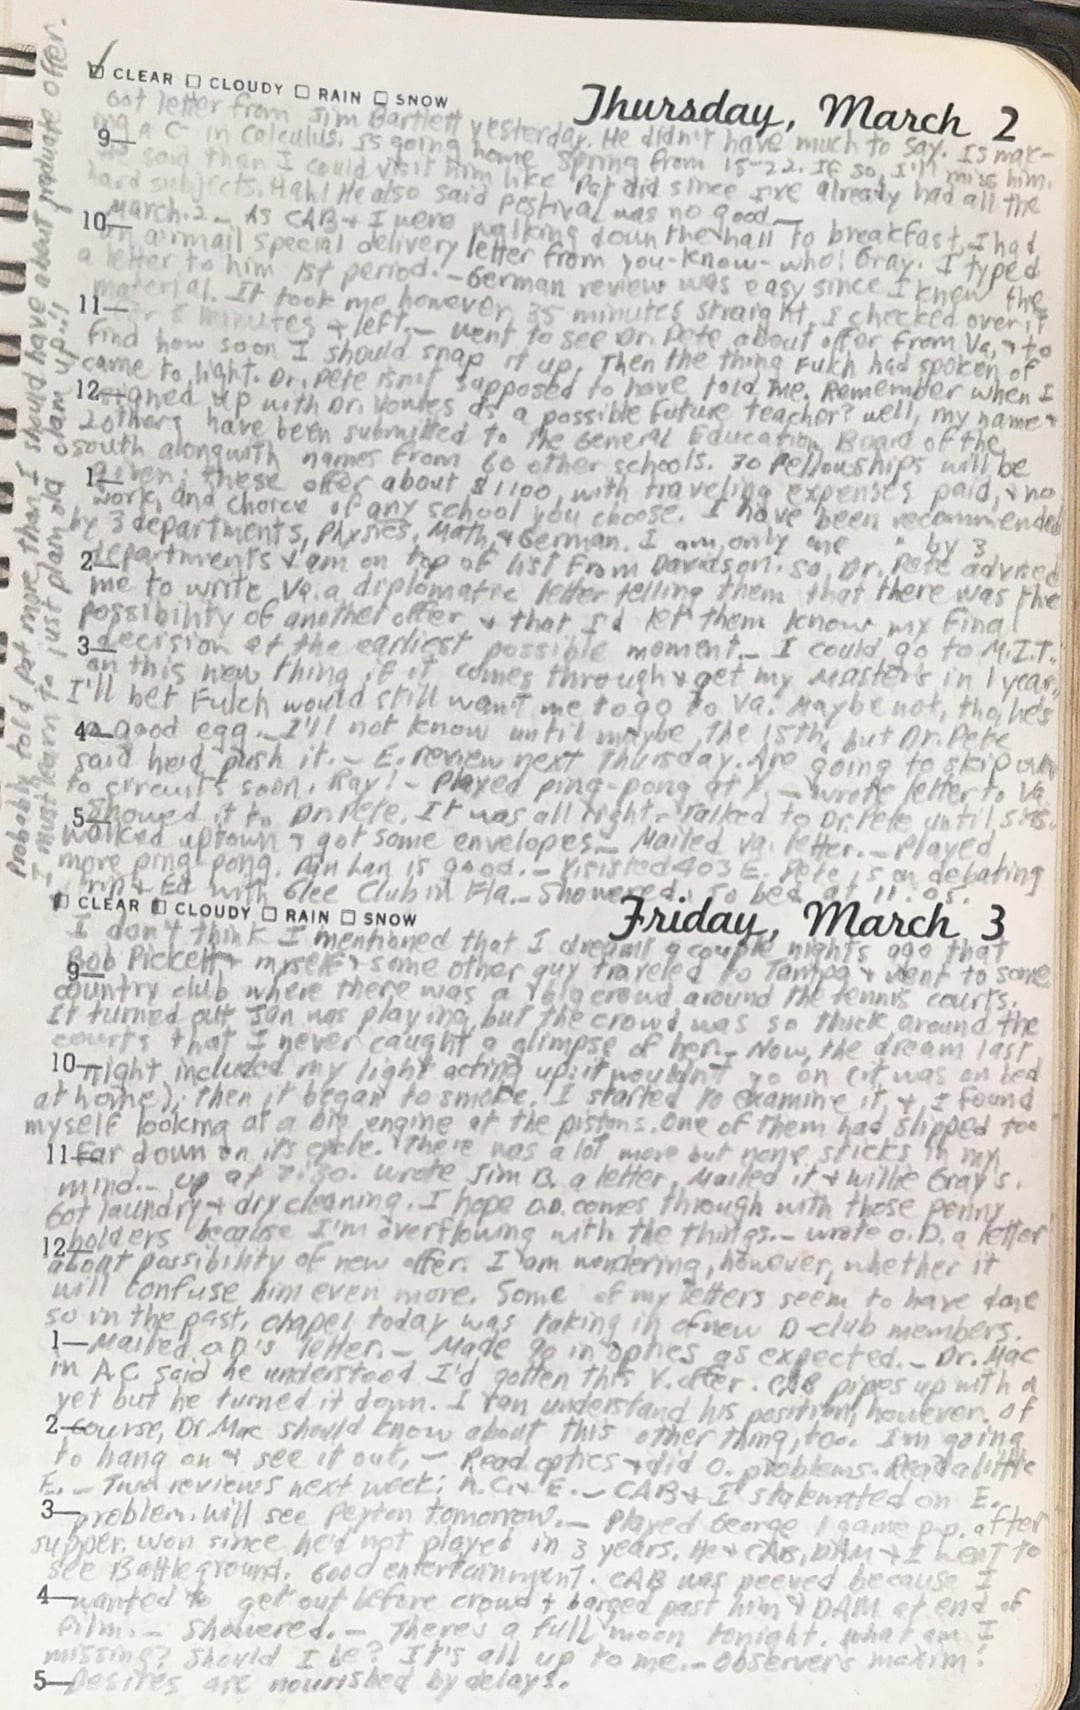 ☑ CLEAR ☐ CLOUDY ☐ RAIN ☐ SNOW
Thursday, March 2
Got letter from Jim Bartlett yesterday. He didn't have much to say. Is mak-
9 ing a C- in Calculus. Is going home Spring from 15-22. If so, I'll miss him.
He said that I could visit him like Pat did since I've already had all the
hard subjects. Hah! He also said festival was no good.—
10 March 2 — As CAB & I were walking down the hall to breakfast, I had
an airmail special delivery letter from you-know-who! Gray. I typed
a letter to him 1st period. — German review was easy since I knew the
material. It took me however, 35 minutes straight. I checked over it
11 for 5 minutes & left. — Went to see Dr. Pete about offer from Va, & to
find how soon I should snap it up. Then the thing Fulch had spoken of
came to light. Dr. Pete isn't supposed to have told me. Remember when I
12 signed up with Dr. Vowles as a possible future teacher? Well, my name &
2 others have been submitted to the General Education Board of the
South along with names from 60 other schools. 30 Fellowships will be
1 given; these offer about $1100, with traveling expenses paid, & no
work, and choice of any school you choose. I have been recommended
by 3 departments, Physics, Math, & German. I am only one " by 3
2 departments & am on top of list from Davidson. So, Dr. Pete advised
me to write Va. a diplomatic letter telling them that there was the
possibility of another offer & that I'd let them know my final
3 decision at the earliest possible moment. — I could go to M.I.T.
on this new thing if it comes through & get my Masters in 1 year,
I'll bet Fulch would still want me to go to Va. Maybe not, tho, he's
4 a good egg. — I'll not know until maybe the 15th, but Dr. Pete
said he'd push it. — E. review next Thursday. Are going to skip over
to circuits soon. Ray! — Played ping-pong at Y. — Wrote letter to Va.
5 Showed it to Dr. Pete. It was all right. Talked to Dr. Pete until 5:15.
Walked uptown & got some envelopes — Mailed Va. letter. — Played
more ping pong. is good. — Visited 403 E. Pete is on debating
trip & Ed with Glee Club in Fla. — Showered. To bed at 11:05.
Probably told Pat more than I should have about graduate offer.
I must learn to just plain old clam up!!
☐ CLEAR ☐ CLOUDY ☐ RAIN ☐ SNOW
Friday, March 3
I don't think I mentioned that I dreamt a couple nights ago that
9 Bob Pickett & myself & some other guy traveled to Tampa & went to some
country club where there was a big crowd around the tennis courts.
It turned out Jan was playing but the crowd was so thick around the
courts that I never caught a glimpse of her. — Now, the dream last
10 night included my light acting up: it wouldn't go on (it was on bed
at home); then it began to smoke. I started to examine it & I found
myself looking at a big engine at the pistons. One of them had slipped too
11 far down on its cycle. There was a lot more but none sticks in my
mind. — Up at 7:30. Wrote Jim B. a letter. Mailed it & Willie Gray's.
Got laundry & dry cleaning. I hope O.D. comes through with those penny
12 holders because I'm overflowing with the things. — Wrote O.D. a letter
about possibility of new offer. I am wondering, however, whether it
will confuse him even more. Some of my letters seem to have done
so in the past. Chapel today was taking in of new D-club members.
1 — Mailed O.D.'s letter. — Made 90 in optics as expected. — Dr. Mac
in A.C. said he understood I'd gotten this V. offer. CAB pipes up with a
yet but he turned it down. I can understand his position, however. Of
2 course, Dr. Mac should know about this other thing, too. I'm going
to hang on & see it out. — Read optics & did O. problems. Read a little
E. — Two reviews next week: A.C. & E. — CAB & I stalemated on E.
3 problem. Will see Peyton tomorrow. — Played George 1 game p.p. after
supper. Won since he'd not played in 3 years. He & CAB, DAM & I went to
see Battleground. Good entertainment. CAB was peeved because I
4 wanted to get out before crowd & barged past him & DAM at end of
film. — Showered. — There's a full moon tonight. What am I
missing? Should I be? It's all up to me. — Observer's maxim:
5 — Desires are nourished by delays.